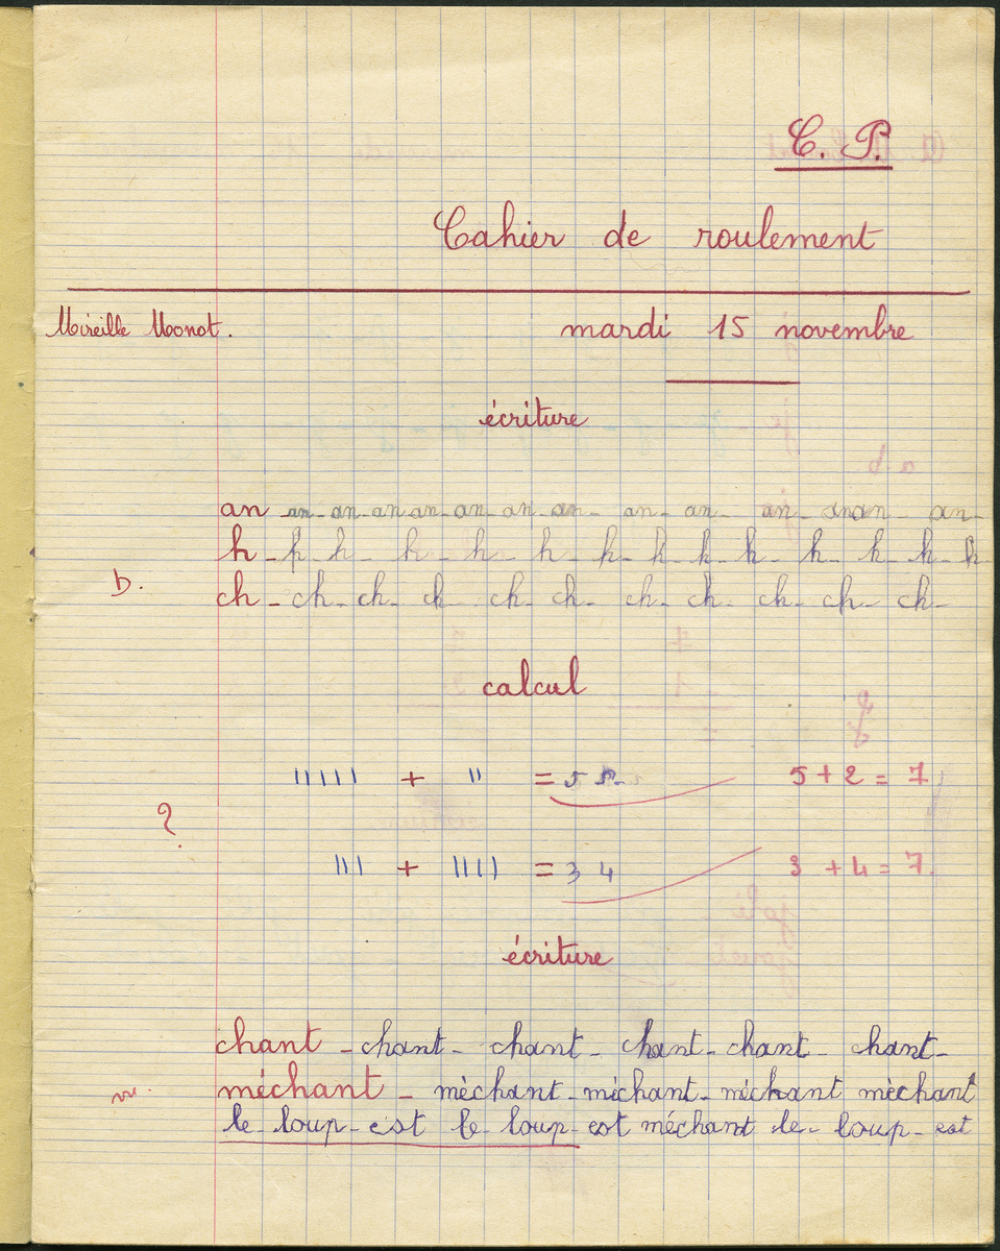 C. P.
Cahier de roulement
Mireille Monot. mardi 15 novembre
écriture
an an - an - an an - an - an - an - an - an - an - anan - an -
h - h - h - h - h - h - h - h - h - h - h - h - h - h
b. ch - ch - ch - ch ch - ch - ch - ch - ch - ch - ch -
calcul
ııııı + ıı = 5 2 5 + 2 = 7
?
ııı + ıııı = 3 4 3 + 4 = 7.
écriture
chant - chant - chant - chant - chant - chant -
méchant - mèchant - mèchant - méchant mèchant
le loup - est le loup - est méchant le - loup - est